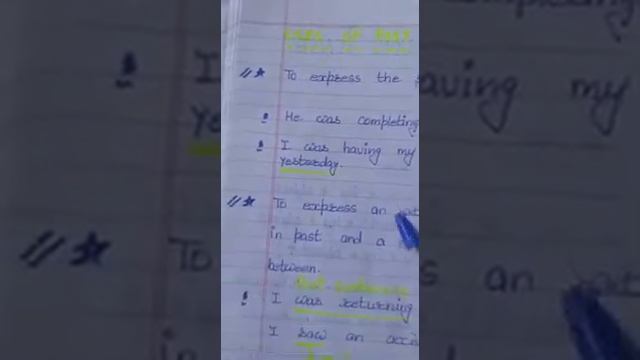 USES OF PAST
To express the
He was completing
I was having my
yesterday.
To express an
in past and a
between.
I was returning
I saw an